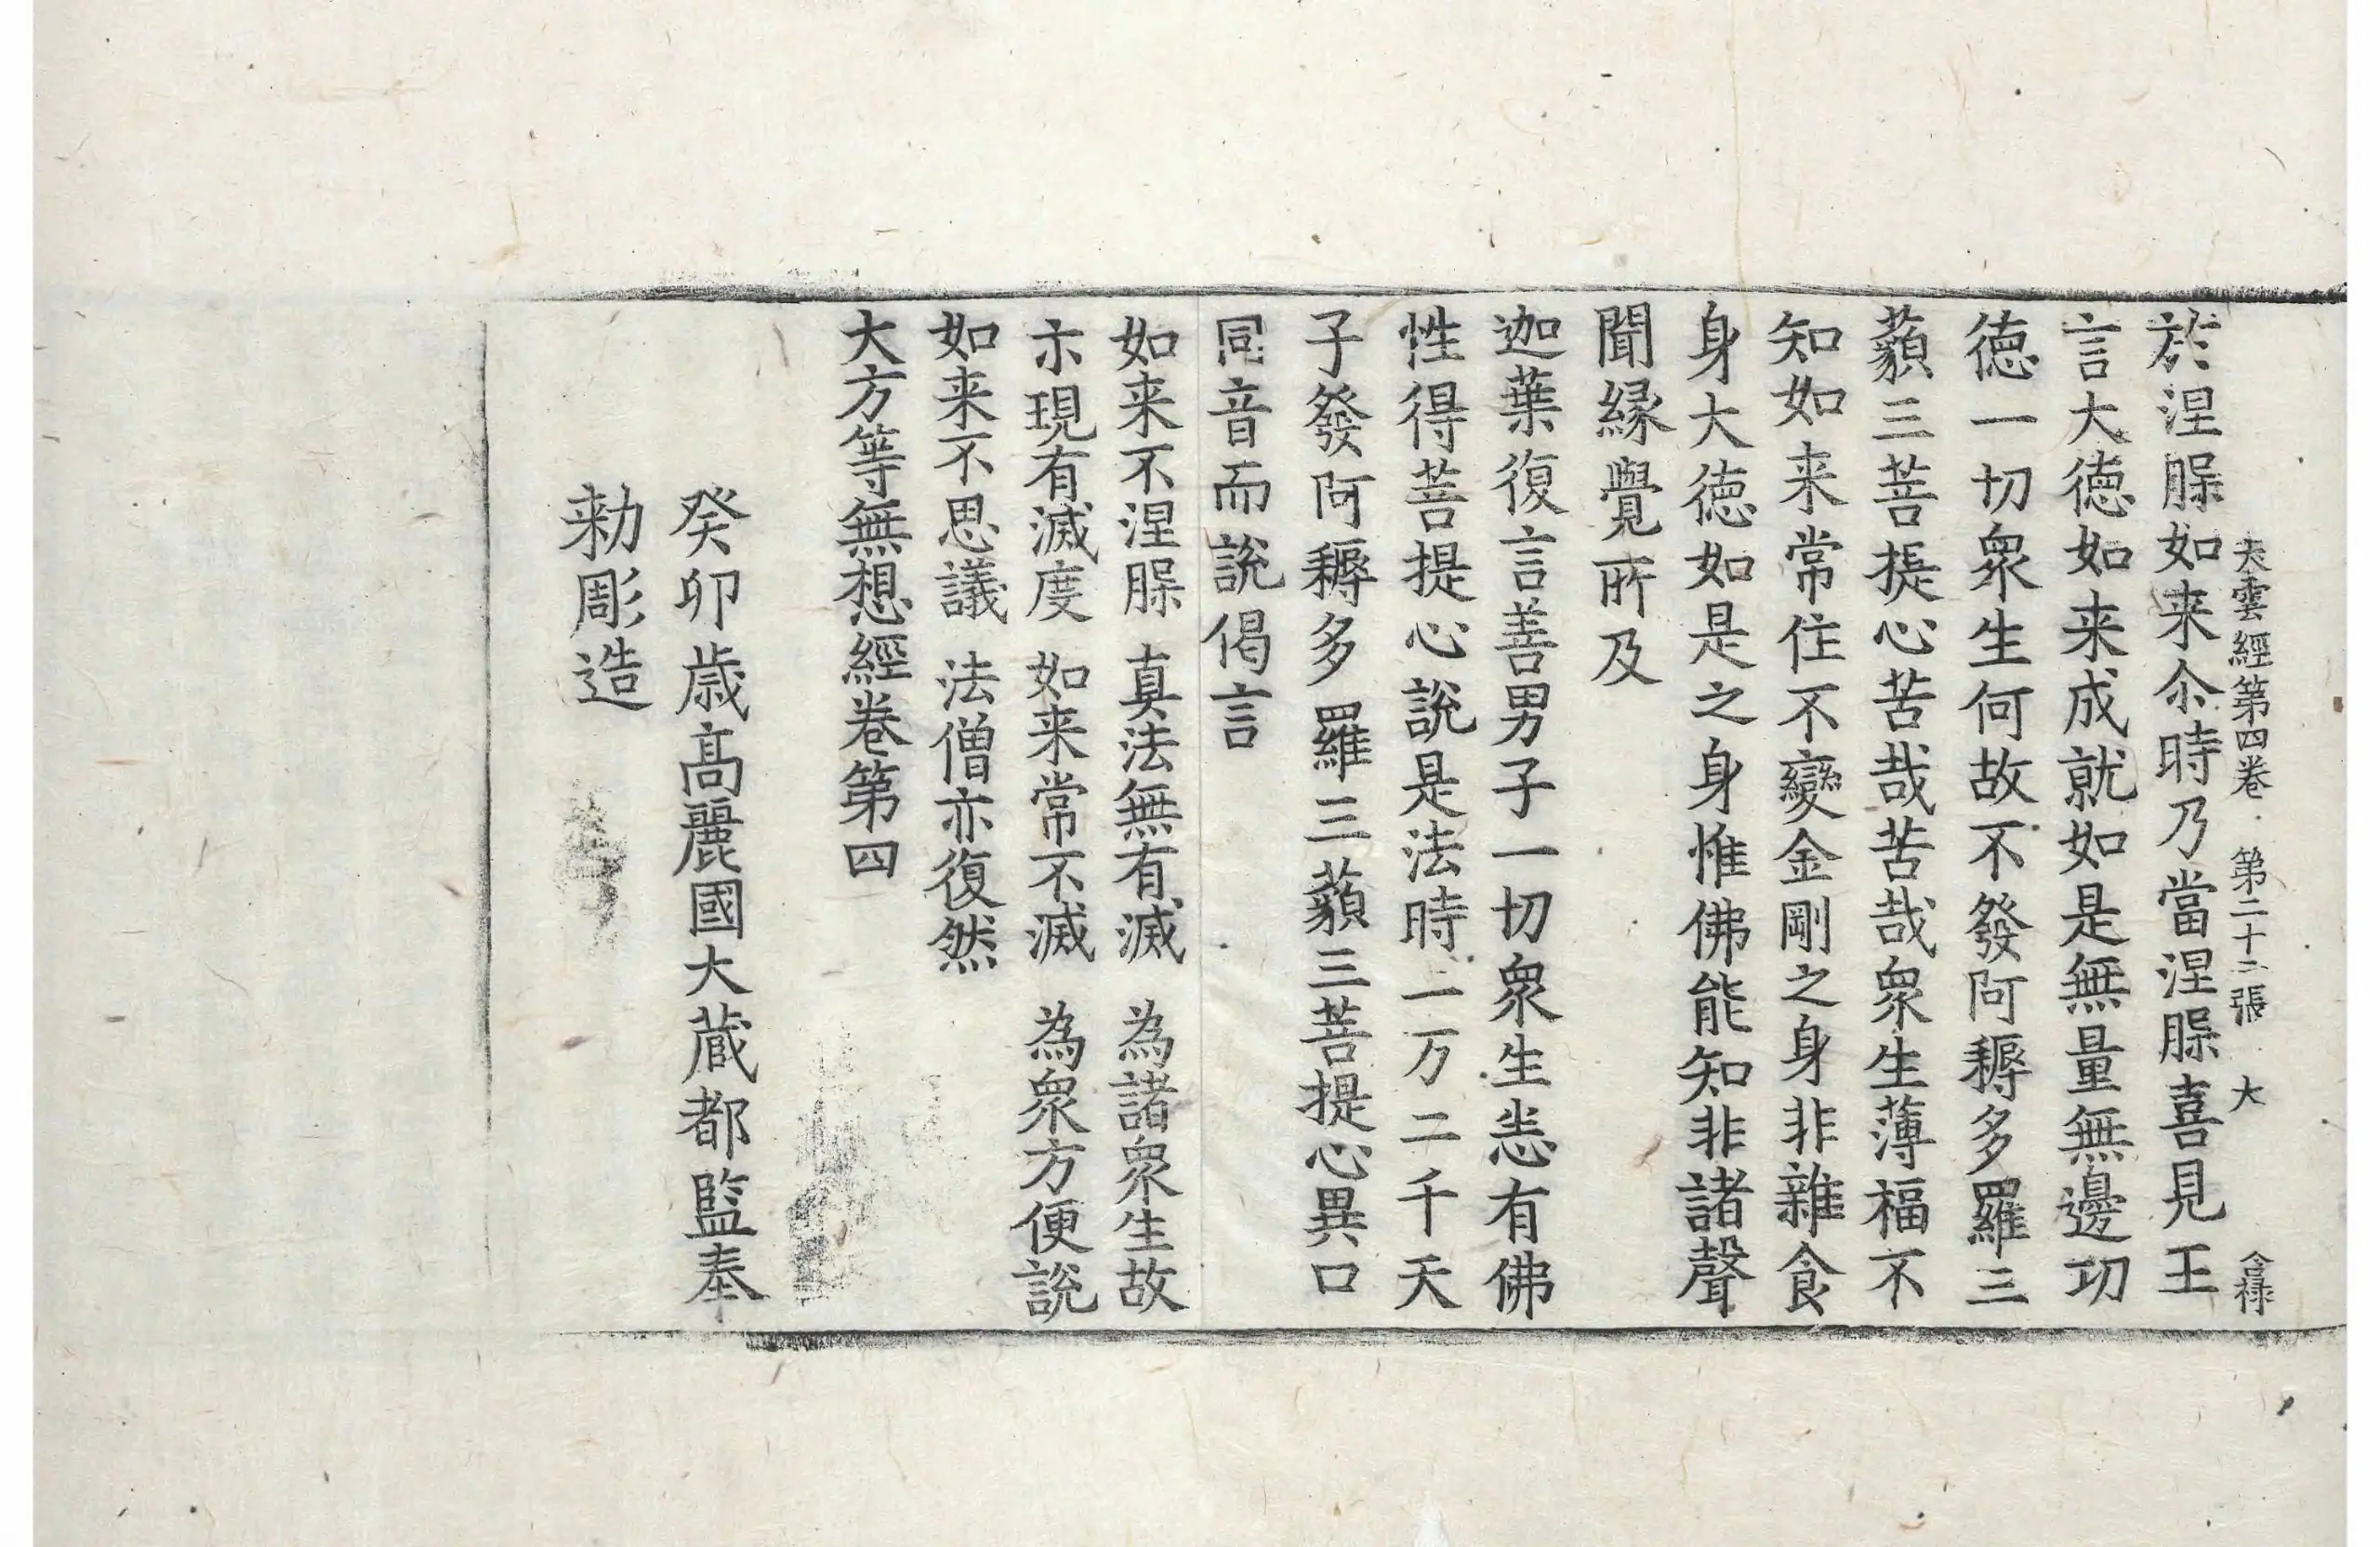 大雲經第四卷 第二十二張 大 含祿
於涅槃如来尒時乃當涅槃喜見王
言大德如来成就如是無量無邊功
德一切衆生何故不發阿耨多羅三
藐三菩提心苦哉苦哉衆生薄福不
知如来常住不變金剛之身非雜食
身大德如是之身惟佛能知非諸聲
聞緣覺所及
迦葉復言善男子一切衆生悉有佛
性得菩提心說是法時二万二千天
子發阿耨多羅三藐三菩提心異口
同音而說偈言
如来不涅槃 真法無有滅 為諸衆生故
示現有滅度 如来常不滅 為衆方便說
如来不思議 法僧亦復然
大方等無想經卷第四
癸卯歲高麗國大藏都監奉
勑彫造